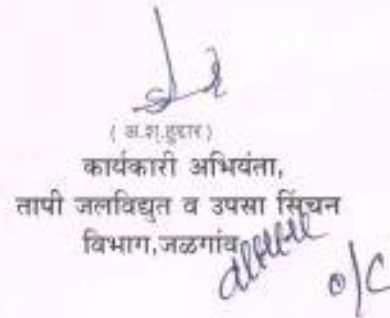 ( अ.श.हुद्दार )
कार्यकारी अभियंता,
तापी जलविद्युत व उपसा सिंचन
विभाग,जळगांव
o/c